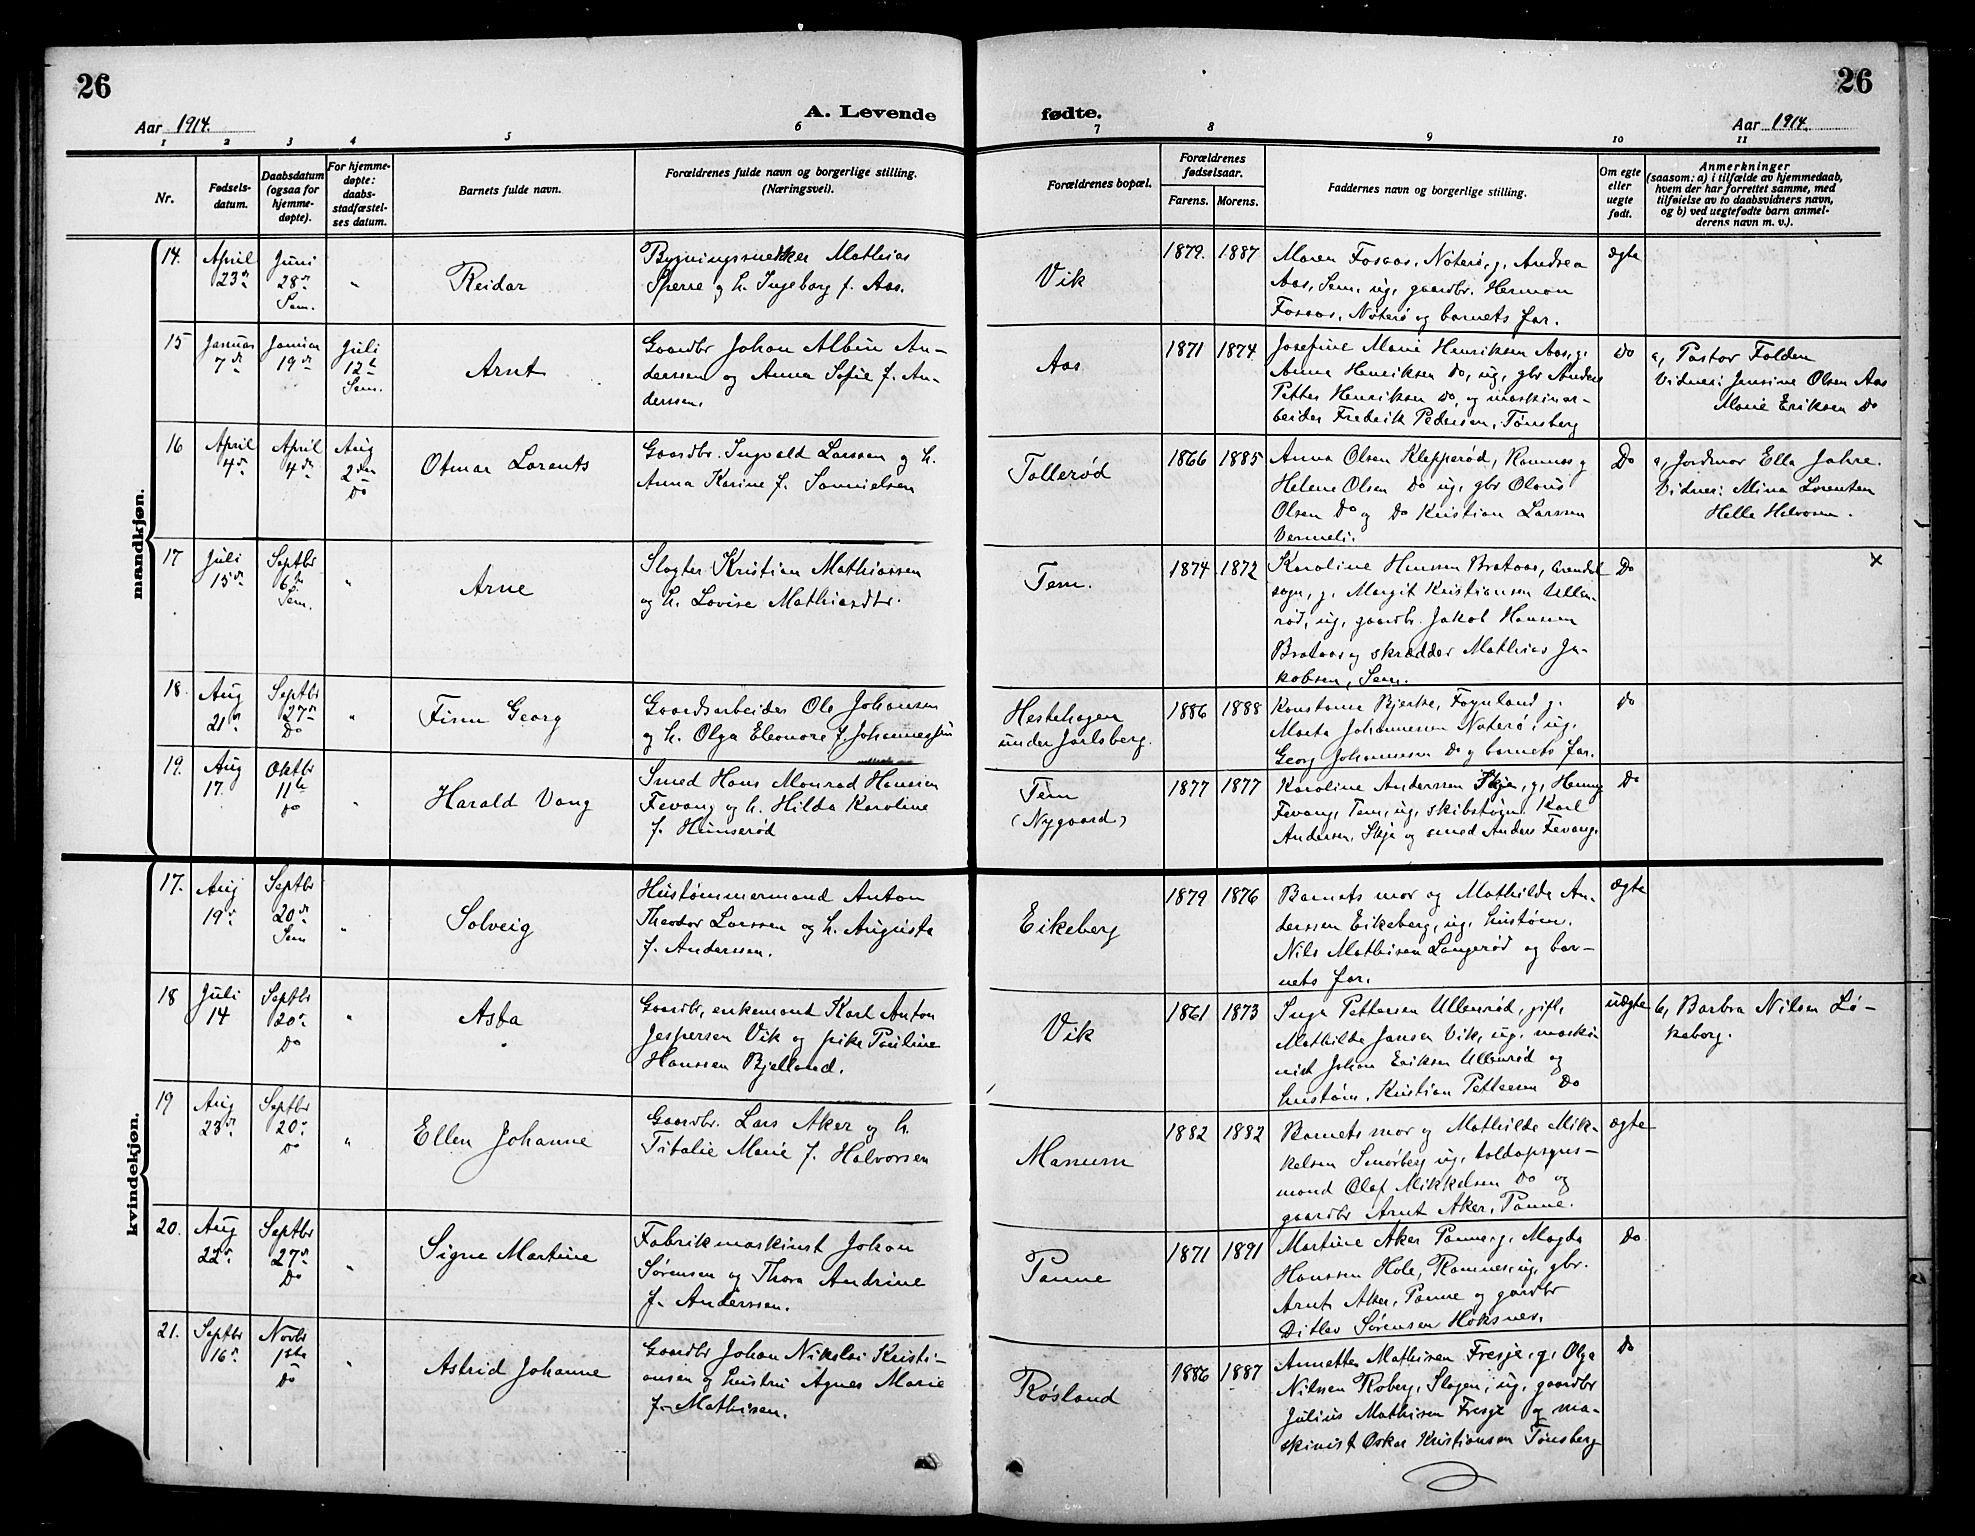 26
26
A. Levende fødte.
Aar 1914.
Aar 1914.
1 2 3 4 5 6 7 8 9 10 11
Nr.
Fødsels-
datum.
Daabsdatum
(ogsaa for
hjemme-
døpte).
For hjemme-
døpte:
daabs-
stadfæstel-
ses datum.
Barnets fulde navn.
Forældrenes fulde navn og borgerlige stilling.
(Næringsvei).
Forældrenes bopæl.
Forældrenes
fødselsaar.
Farens. Morens.
Faddernes navn og borgerlige stilling.
Om egte
eller
uegte
født.
Anmerkninger
(saasom: a) i tilfælde av hjemmedaab,
hvem der har forrettet samme, med
tilføielse av to daabsvidners navn,
og b) ved uegtefødte barn anmel-
derens navn m. v.).
mandkjøn.
14.
April
23de
Juni
28de
Sem.
"
Reidar
Bygningssnekker Mathias
Sperre og h. Ingeborg f. Aas.
Vik
1879. 1887
Maren Fossaas, Nøterø, g, Andrea
Aas, Sem, ug, gaardbr. Herman
Fossaas, Nøterø og barnets far.
ægte
15
Januar
7de
Januar
19de
Juli
12te
Sem.
Arnt
Gaardbr Johan Albin An-
derssen og Anna Sofie f. An-
derssen.
Aas
1871 1874
Josefine Marie Henriksen Aas, g.
Anna Henriksen Do, ug, gbr Anders
Petter Henriksen Do, og maskinar-
beider Fredrik Pedersen, Tønsberg
Do
a, Pastor Falden
Vidner: Jensine Olsen Aas
Marie Eriksen Do
16
April
4de
April
4de
Aug
2den
Do
Otmar Lorents
Gaardbr. Ingvald Larssen og h.
Anna Karine f. Samuelsen
Tallerød
1866 1885
Anna Olsen Klepperød, Ramnes g
Helene Olsen Do ug, gbr Olaus
Olsen Do og Do Kristian Larssen
Vermeli.
Do
a, Jordmor Ella Jahre.
Vidner: Mina Lorentsen
Helle Halvorsen.
17
Juli
15de
Septbr
6te
Sem.
"
Arne
Slagter Kristian Mathiassen
og h. Lovise Mathiasdtr.
Tem.
1874 1872
Karoline Hanssen Brataas, Arendal
sogn, g, Margit Kristiansen Ullen-
rød, ug, gaardbr. Jakob Hanssen
Brataas og skrædder Mathias Ja-
kobsen, Sem.
Do
×
18.
Aug
21de
Septbr
27de
Do
"
Finn Georg
Gaardsarbeider Ole Johansen
og h. Olga Eleonore f. Johannessen
Hestehagen
under Jarlsberg.
1886 1888
Konstanse Bjerke, Føynland g.
Marta Johannessen Nøterø, ug,
Georg Johannessen Do og barnets far.
Do
19.
Aug
17.
Oktbr
11te
Do
"
Harald Vang
Smed Hans Monrad Hanssen
Fevang og h. Hilda Karoline
f. Hunserød
Tem
(Nygaard)
1877 1877
Karoline Anderssen Skje, g, Henny
Fevang, Tem, ug, skibstøm. Karl
Andersen, Skje og smed Anders Fevang.
Do
kvindekjøn.
17.
Aug
19de
Septbr
20de
Sem
"
Solveig
Hustømmermand Anton
Theodor Larssen og h. Augusta
f. Anderssen.
Eikeberg
1879 1876
Barnets mor og Mathilde An-
derssen Eikeberg, ug, hustøm.
Nils Mathisen Langerød og bar-
nets far.
ægte
18
Juli
14
Septbr
20de
Do
"
Asta
Gaardbr, enkemand Karl Anton
Jespersen Vik og pike Pauline
Hanssen Bjelland.
Vik
1861 1873
Inga Pettersen Ullenrød, gift,
Mathilde Jansen Vik, ug, maski-
nist Johan Eriksen Ullenrød og
hustøm. Kristian Pettersen Do
uægte
b, Barbra Nilsen Lø-
keborg.
19
Aug
23de
Septbr
20de
Do
"
Ellen Johanne
Gaardbr. Lars Aker og h.
Titalie Marie f. Halvorsen
Manum
1882 1882
Barnets mor og Mathilde Mik-
kelsen Smørberg ug, toldopsyns-
mand Olaf Mikkelsen Do og
gaardbr Arnt Aker, Panne.
ægte
20.
Aug
22de
Septbr
27de
Do
"
Signe Martine
Fabrikmaskinist Johan
Sørensen og Thora Andrine
f. Anderssen.
Panne
1871 1891
Martine Aker Panne, g, Magda
Hanssen Hole, Ramnes, ug, gbr.
Arnt Aker, Panne og gaardbr
Ditlev Sørensen Høksnes.
Do
21.
Septbr
16de
Novbr
1ste
Do
"
Astrid Johanne
Gaardbr Johan Nikolai Kristi-
ansen og hustru Agnes Marie
f. Mathisen.
Røsland
1886 1887
Annette Mathisen Fresje, g, Olga
Nilssen Roberg, Slagen, ug, gaardbr
Julius Mathisen Fresje og ma-
skinist Oskar Kristiansen Tønsberg
Do